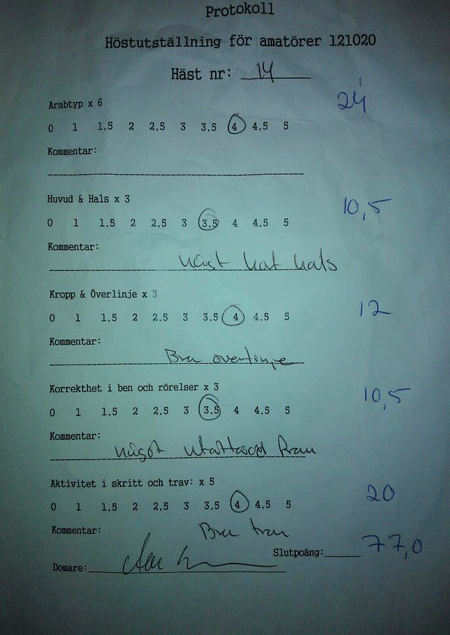 Protokoll
Höstutställning för amatörer 121020
Häst nr: 14
Arabtyp x 6
24
0 1 1,5 2 2,5 3 3,5 4 4,5 5
Kommentar:
Huvud & Hals x 3
10,5
0 1 1,5 2 2,5 3 3,5 4 4,5 5
Kommentar:
något kort hals
Kropp & Överlinje x 3
12
0 1 1,5 2 2,5 3 3,5 4 4,5 5
Kommentar:
Bra överlinje
Korrekthet i ben och rörelser x 3
10,5
0 1 1,5 2 2,5 3 3,5 4 4,5 5
Kommentar:
något utåttåad fram
Aktivitet i skritt och trav: x 5
20
0 1 1,5 2 2,5 3 3,5 4 4,5 5
Kommentar:
Bra trav
Slutpoäng: 77,0
Domare: